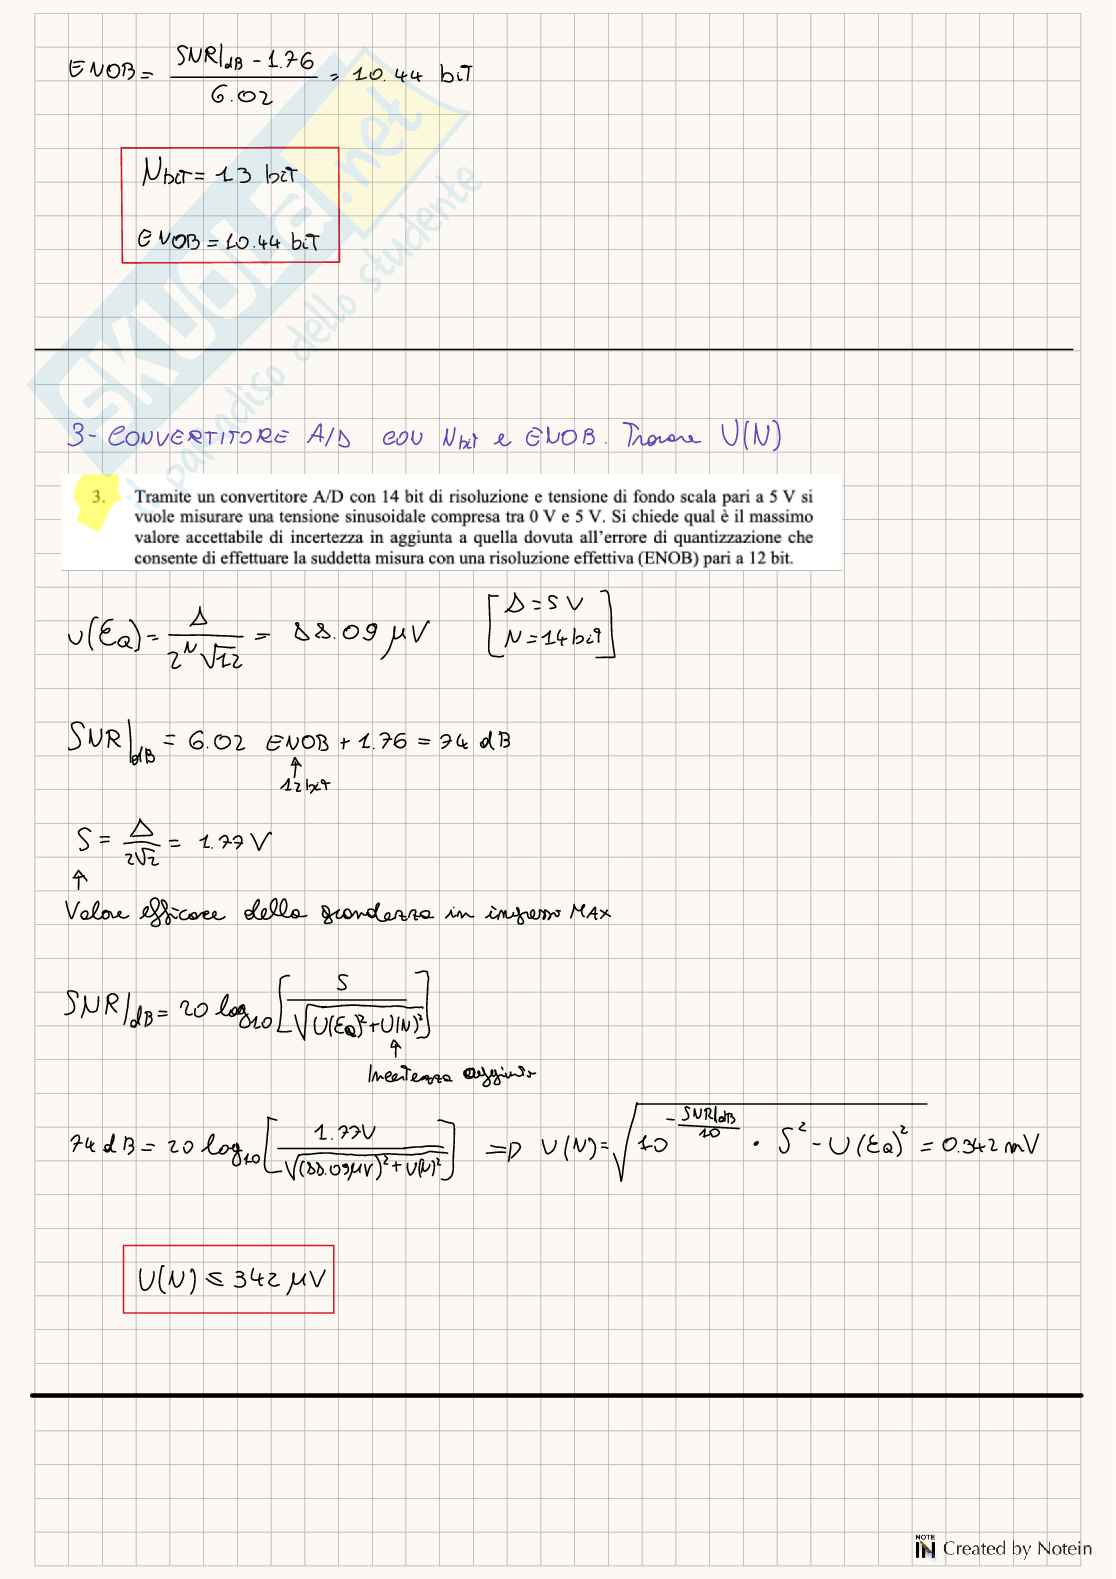 ENOB = (SNR|dB - 1.76) / 6.02 = 10.44 biT
Nbit = 13 bit
ENOB = 10.44 biT
SKUOLA.net
il paradiso dello studente
3- CONVERTITORE A/D CON Nbit e ENOB. Trovare U(N)
3. Tramite un convertitore A/D con 14 bit di risoluzione e tensione di fondo scala pari a 5 V si
vuole misurare una tensione sinusoidale compresa tra 0 V e 5 V. Si chiede qual è il massimo
valore accettabile di incertezza in aggiunta a quella dovuta all'errore di quantizzazione che
consente di effettuare la suddetta misura con una risoluzione effettiva (ENOB) pari a 12 bit.
U(ƐQ) = Δ / (2^N √12) = 88.09 μV [Δ = 5 V
N = 14 bit]
SNR|dB = 6.02 ENOB + 1.76 = 74 dB
↑
12 bit
S = Δ / (2√2) = 1.77 V
↑
Valore efficace della grandezza in ingresso MAX
SNR|dB = 20 log10 [S / √(U(ƐQ)² + U(N)²)]
↑
Incertezza aggiunta
74 dB = 20 log10 [1.77V / √((88.09μV)² + U(N)²)] => U(N) = √(10^(-SNR|dB / 10) · S² - U(ƐQ)²) = 0.342 mV
U(N) ≤ 342 μV
NOTE
IN Created by Notein